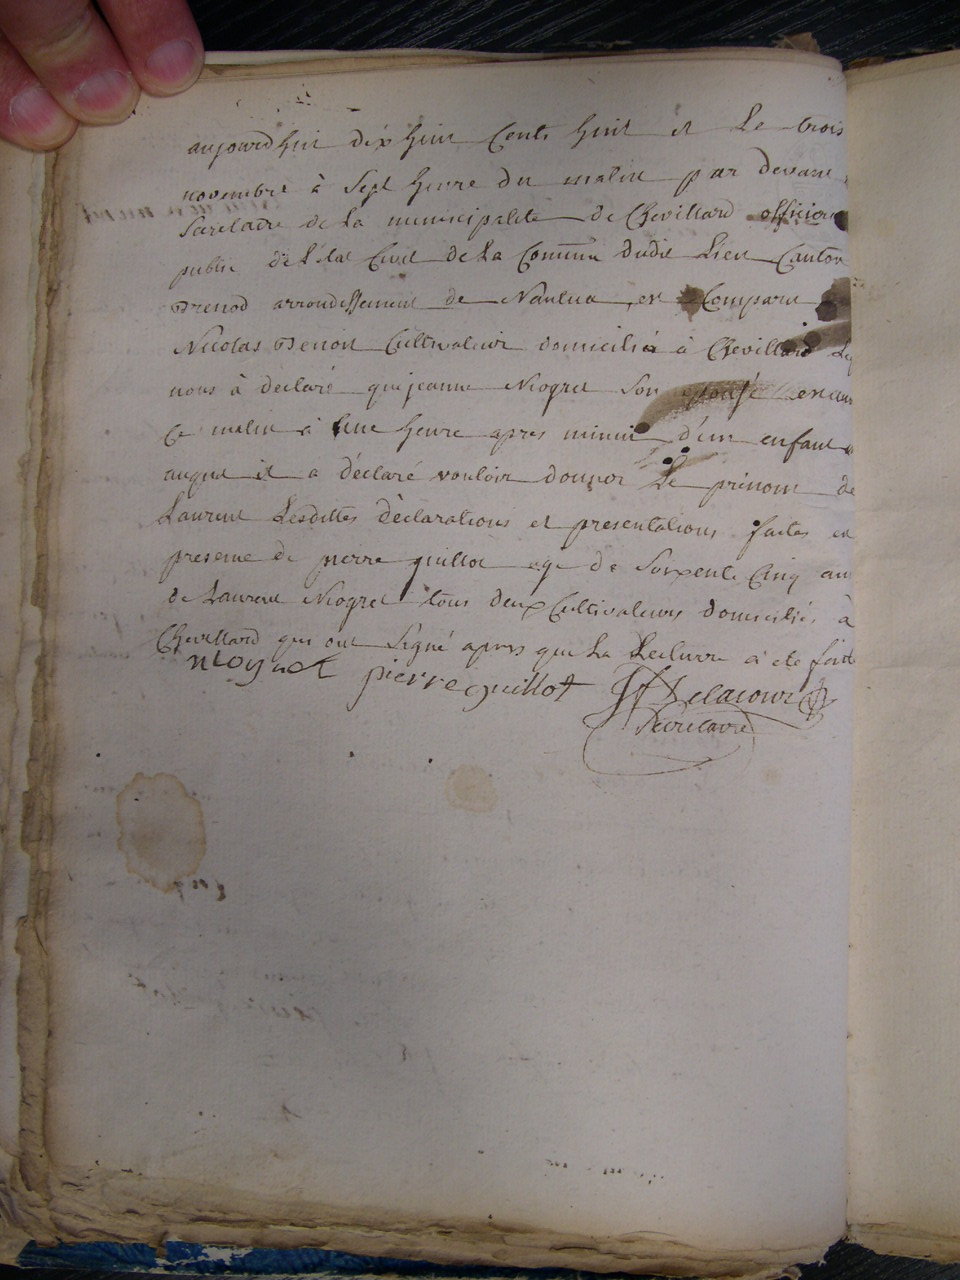 aujourdhui dix huit Cents huit et Le trois
novembre à Sept heure du matin par devant
Secretaire de La municipalité de Chevillard officier
public de L'état Civil de La Commune dudit Lieu Canton
Brenod arrondissement de Nantua, est Comparu
Nicolas Benoit Cultivateur domicilié à Chevillard Le
nous à declaré que jeanne Niogret Son epouse
Ce matin à Une heure apres minuit d'un enfant
auquel il a déclaré vouloir donner Le prénom de
Laurent Lesdittes déclarations et presentations faites en
presence de pierre guillot agé de Soixente Cinq an
de Laurent Niogret tous deux Cultivateurs domiciliés à
Chevillard qui ont Signé apres que La Lecture a été faite
niogret pierre guillot Delacour
Secretaire